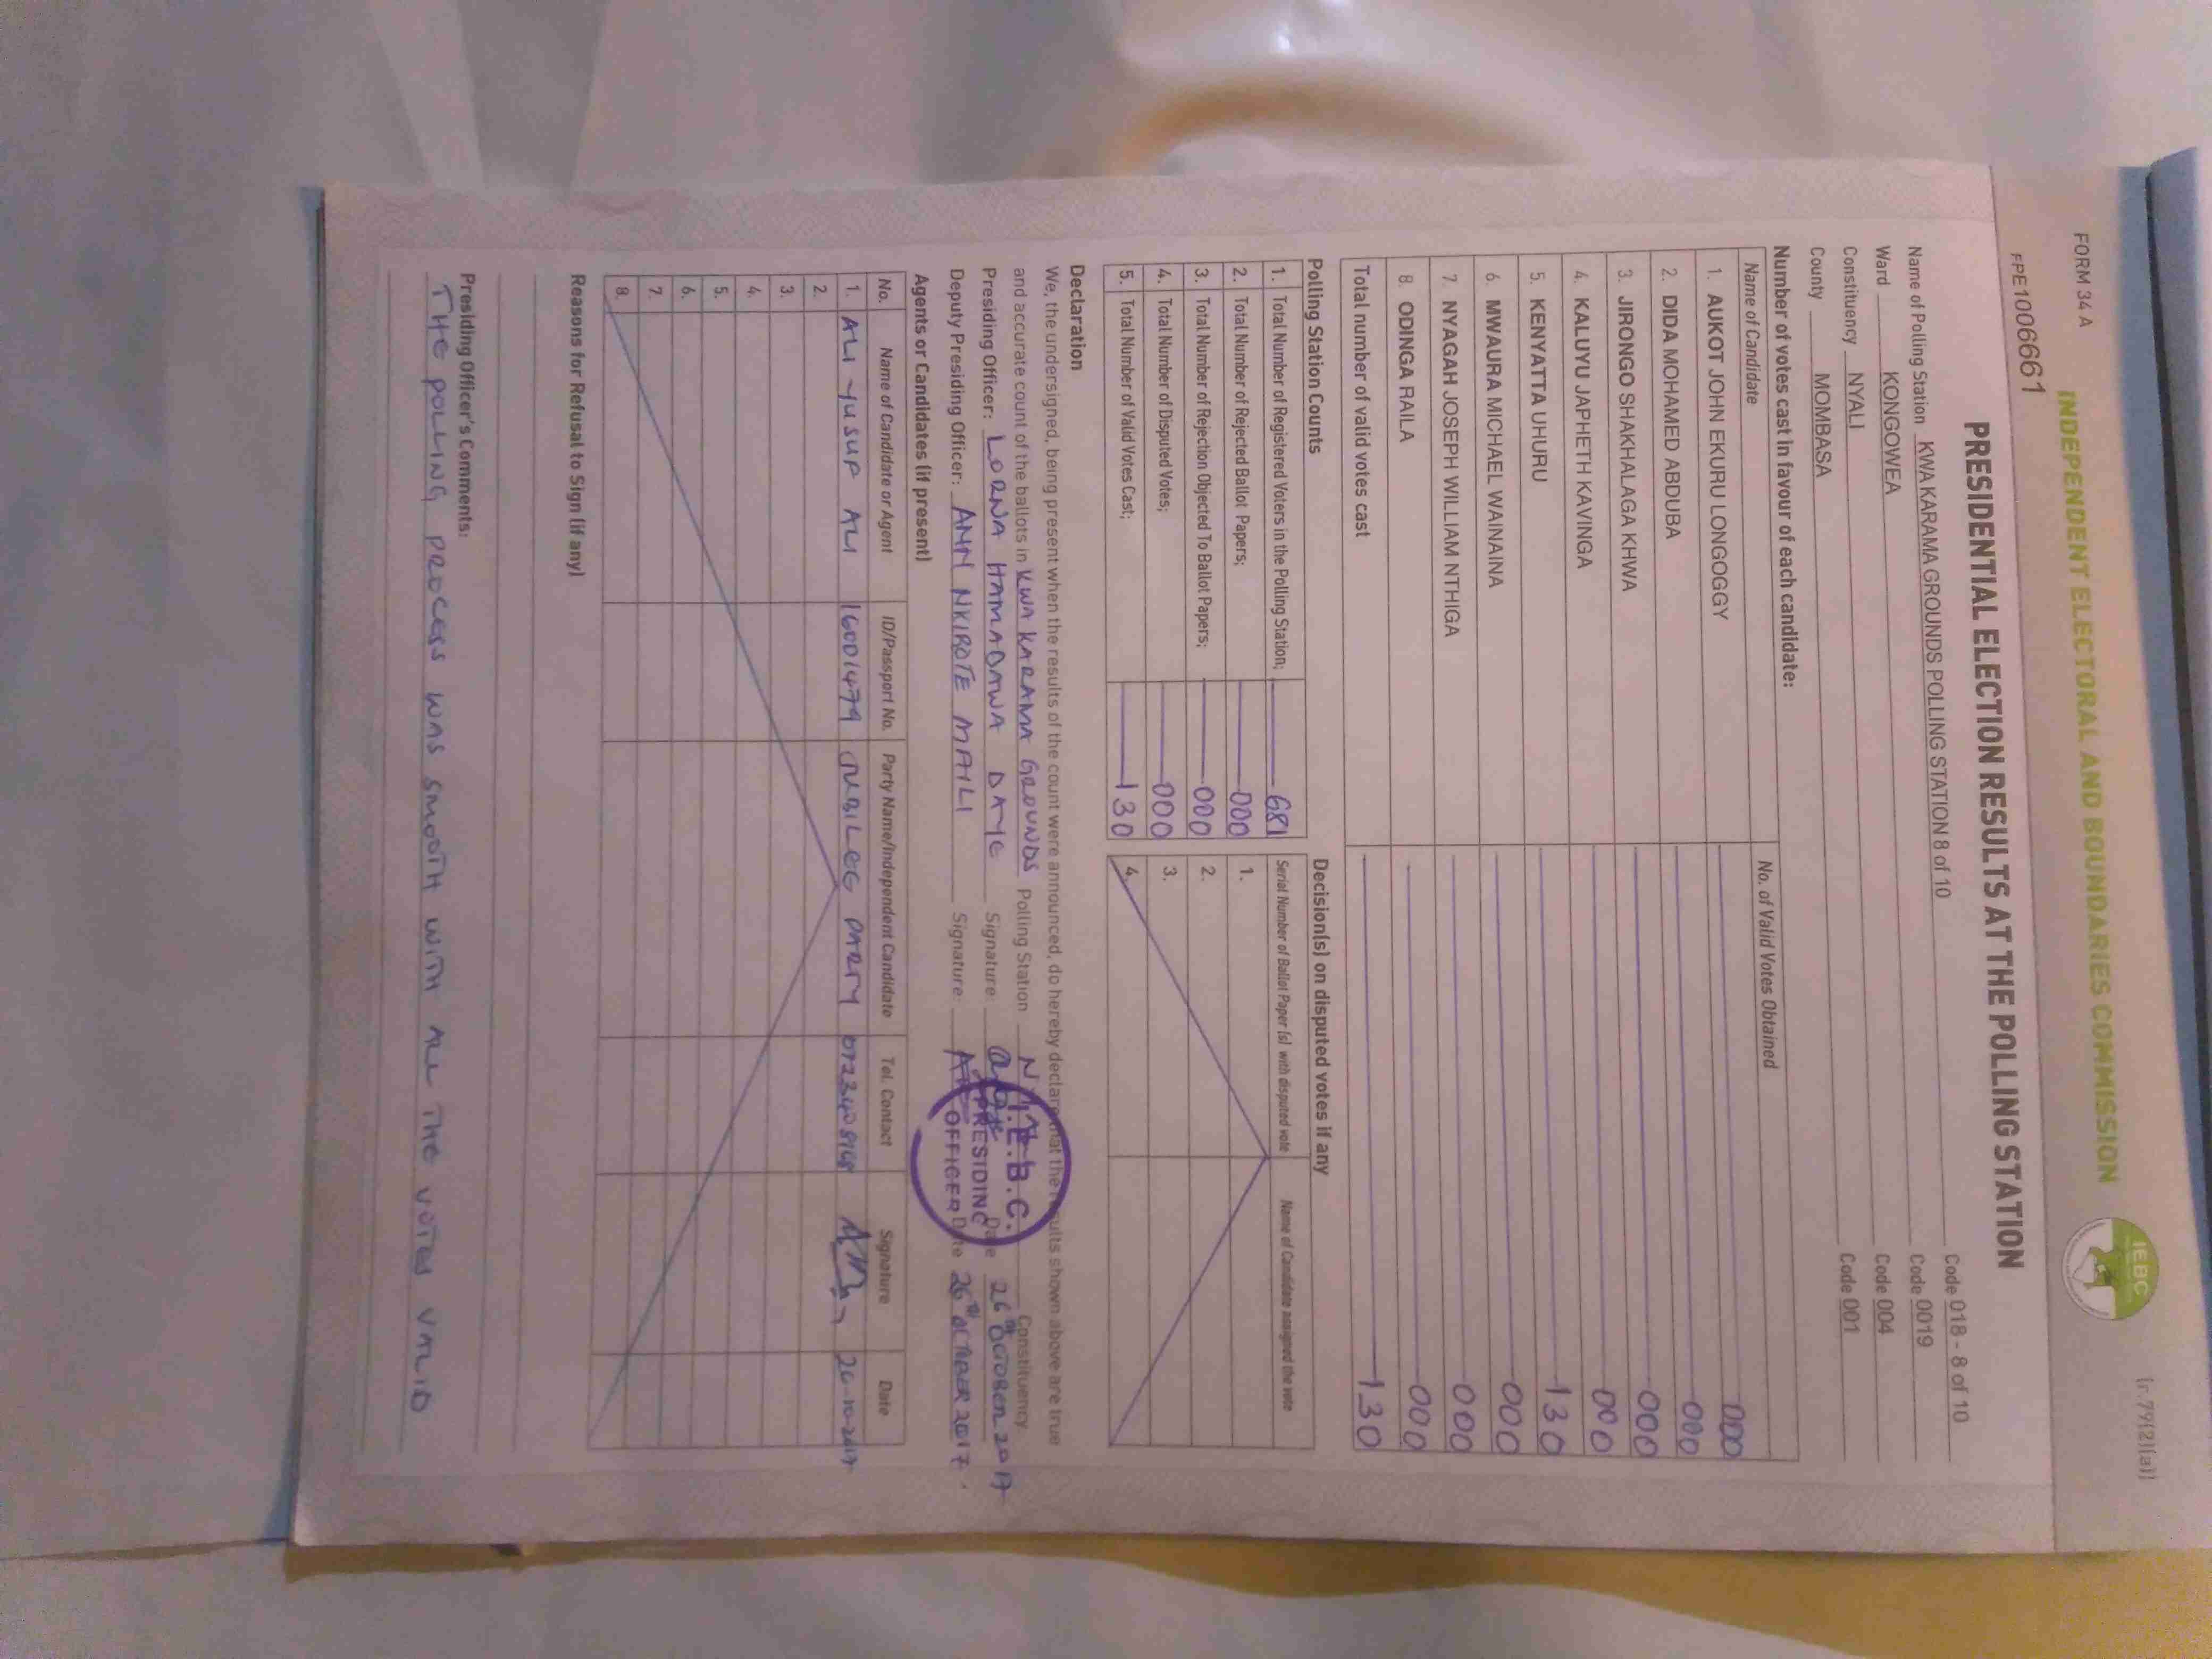 FORM 34 A
(r.79(2)(a))
INDEPENDENT ELECTORAL AND BOUNDARIES COMMISSION
IEBC
FPE1006661
PRESIDENTIAL ELECTION RESULTS AT THE POLLING STATION
Name of Polling Station KWA KARAMA GROUNDS POLLING STATION 8 of 10 Code 018 - 8 of 10
Ward KONGOWEA Code 0019
Constituency NYALI Code 004
County MOMBASA Code 001
Number of votes cast in favour of each candidate:
Name of Candidate No. of Valid Votes Obtained
1. AUKOT JOHN EKURU LONGOGGY 000
2. DIDA MOHAMED ABDUBA 000
3. JIRONGO SHAKHALAGA KHWA 000
4. KALUYU JAPHETH KAVINGA 000
5. KENYATTA UHURU 130
6. MWAURA MICHAEL WAINAINA 000
7. NYAGAH JOSEPH WILLIAM NTHIGA 000
8. ODINGA RAILA 000
Total number of valid votes cast 130
Polling Station Counts
1. Total Number of Registered Voters in the Polling Station; 681
2. Total Number of Rejected Ballot Papers; 000
3. Total Number of Rejection Objected To Ballot Papers; 000
4. Total Number of Disputed Votes; 000
5. Total Number of Valid Votes Cast; 130
Decision(s) on disputed votes if any
Serial Number of Ballot Paper (s) with disputed vote Name of Candidate assigned the vote
1.
2.
3.
4.
Declaration
We, the undersigned, being present when the results of the count were announced, do hereby declare that the results shown above are true
and accurate count of the ballots in KWA KARAMA GROUNDS Polling Station Constituency
Presiding Officer: LORNA HAMADAWA DAYE Signature: Date 26th OCTOBER 2017
Deputy Presiding Officer: ANN NKIROTE MAILI Signature: Date 26th OCTOBER 2017.
I.E.B.C.
PRESIDING
OFFICER
Agents or Candidates (if present)
No. Name of Candidate or Agent ID/Passport No. Party Name/Independent Candidate Tel. Contact Signature Date
1. ALI YUSUP ALI 16001479 JUBILEE PARTY
2.
3.
4.
5.
6.
7.
8.
Reasons for Refusal to Sign (if any)
Presiding Officer's Comments:
THE POLLING PROCESS WAS SMOOTH WITH ALL THE VOTES VALID